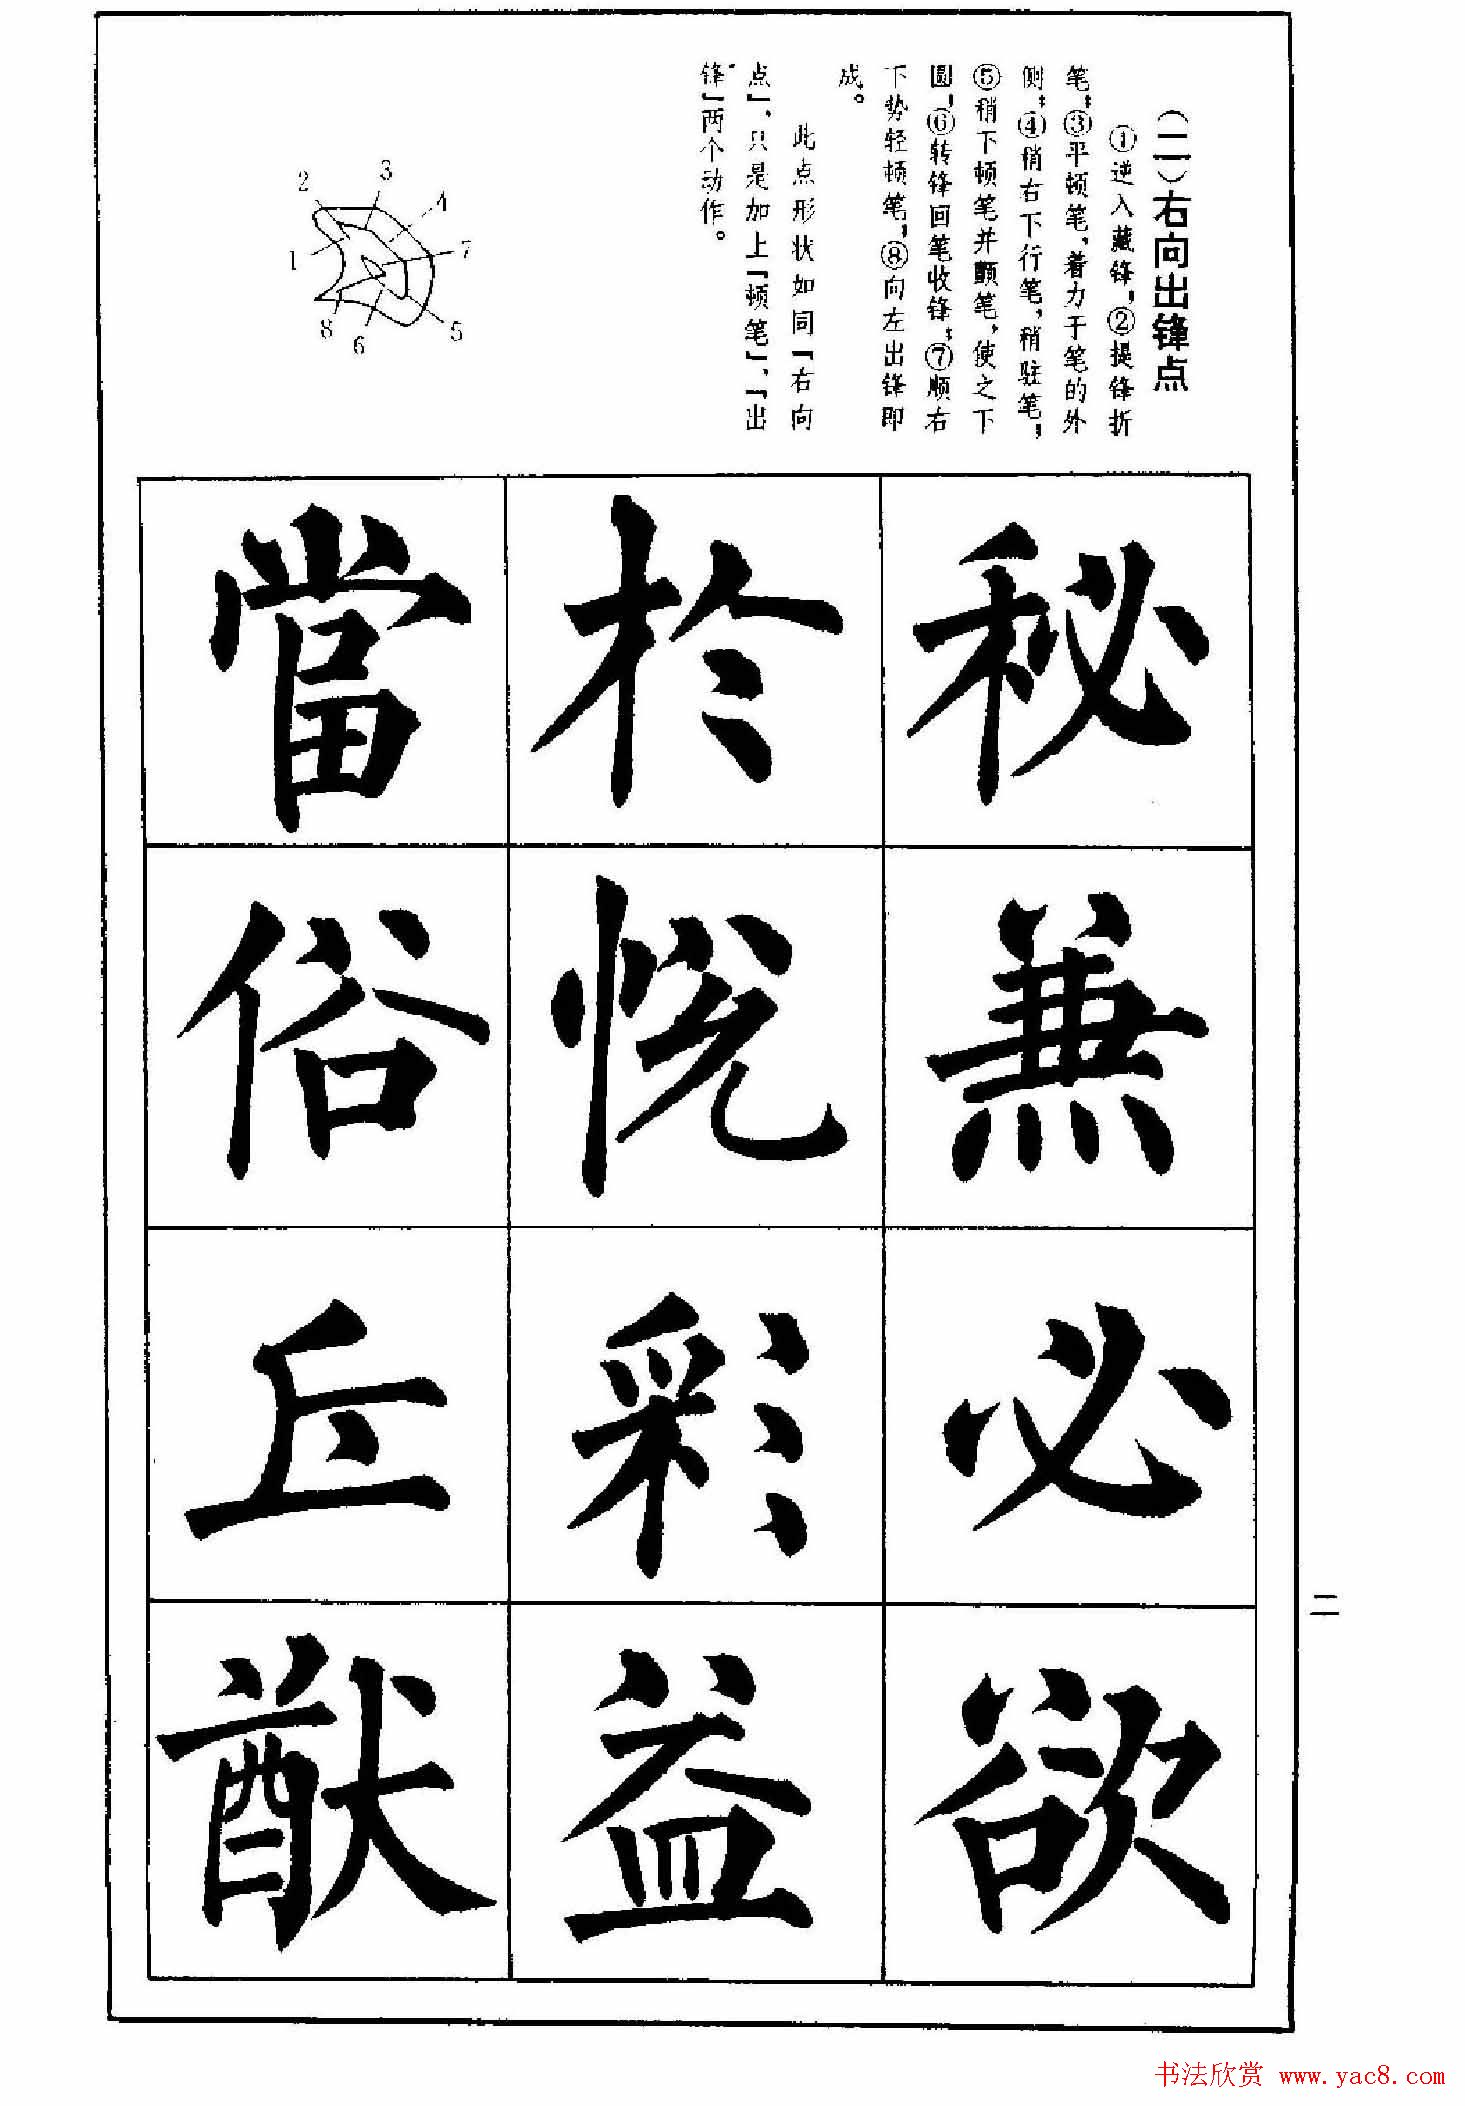 （二）右向出锋点
①逆入藏锋，②提锋折
笔；③平顿笔，着力于笔的外
侧；④稍右下行笔，稍驻笔，
⑤稍下顿笔并颤笔，使之下
圆，⑥转锋回笔收锋；⑦顺右
下势轻顿笔，⑧向左出锋即
成。
此点形状如同“右向
点”，只是加上“顿笔”、“出
锋”两个动作。
1
2
3
4
7
5
6
8
秘
兼
必
欲
於
悦
彩
益
當
俗
丘
猷
二
书法欣赏 www.yac8.com